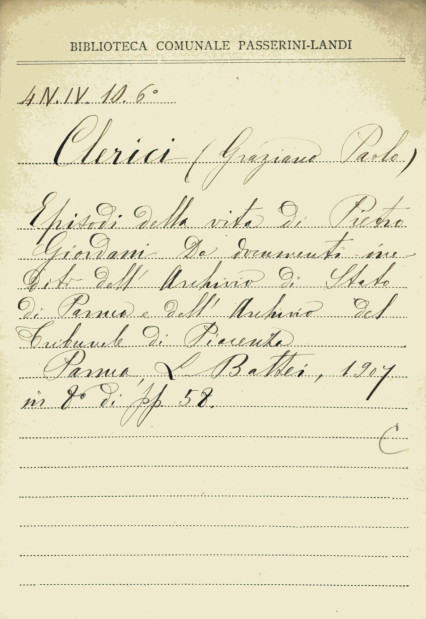 BIBLIOTECA COMUNALE PASSERINI-LANDI
4 N. IV. 10. 6°
Clerici (Graziano Paolo)
Episodi della vita di Pietro
Giordani Da documenti ine-
diti dell' Archivio di Stato
di Parma e dell' Archivio del
Tribunale di Piacenza
Parma, L Battei, 1907
in 8° di pp 58.
C